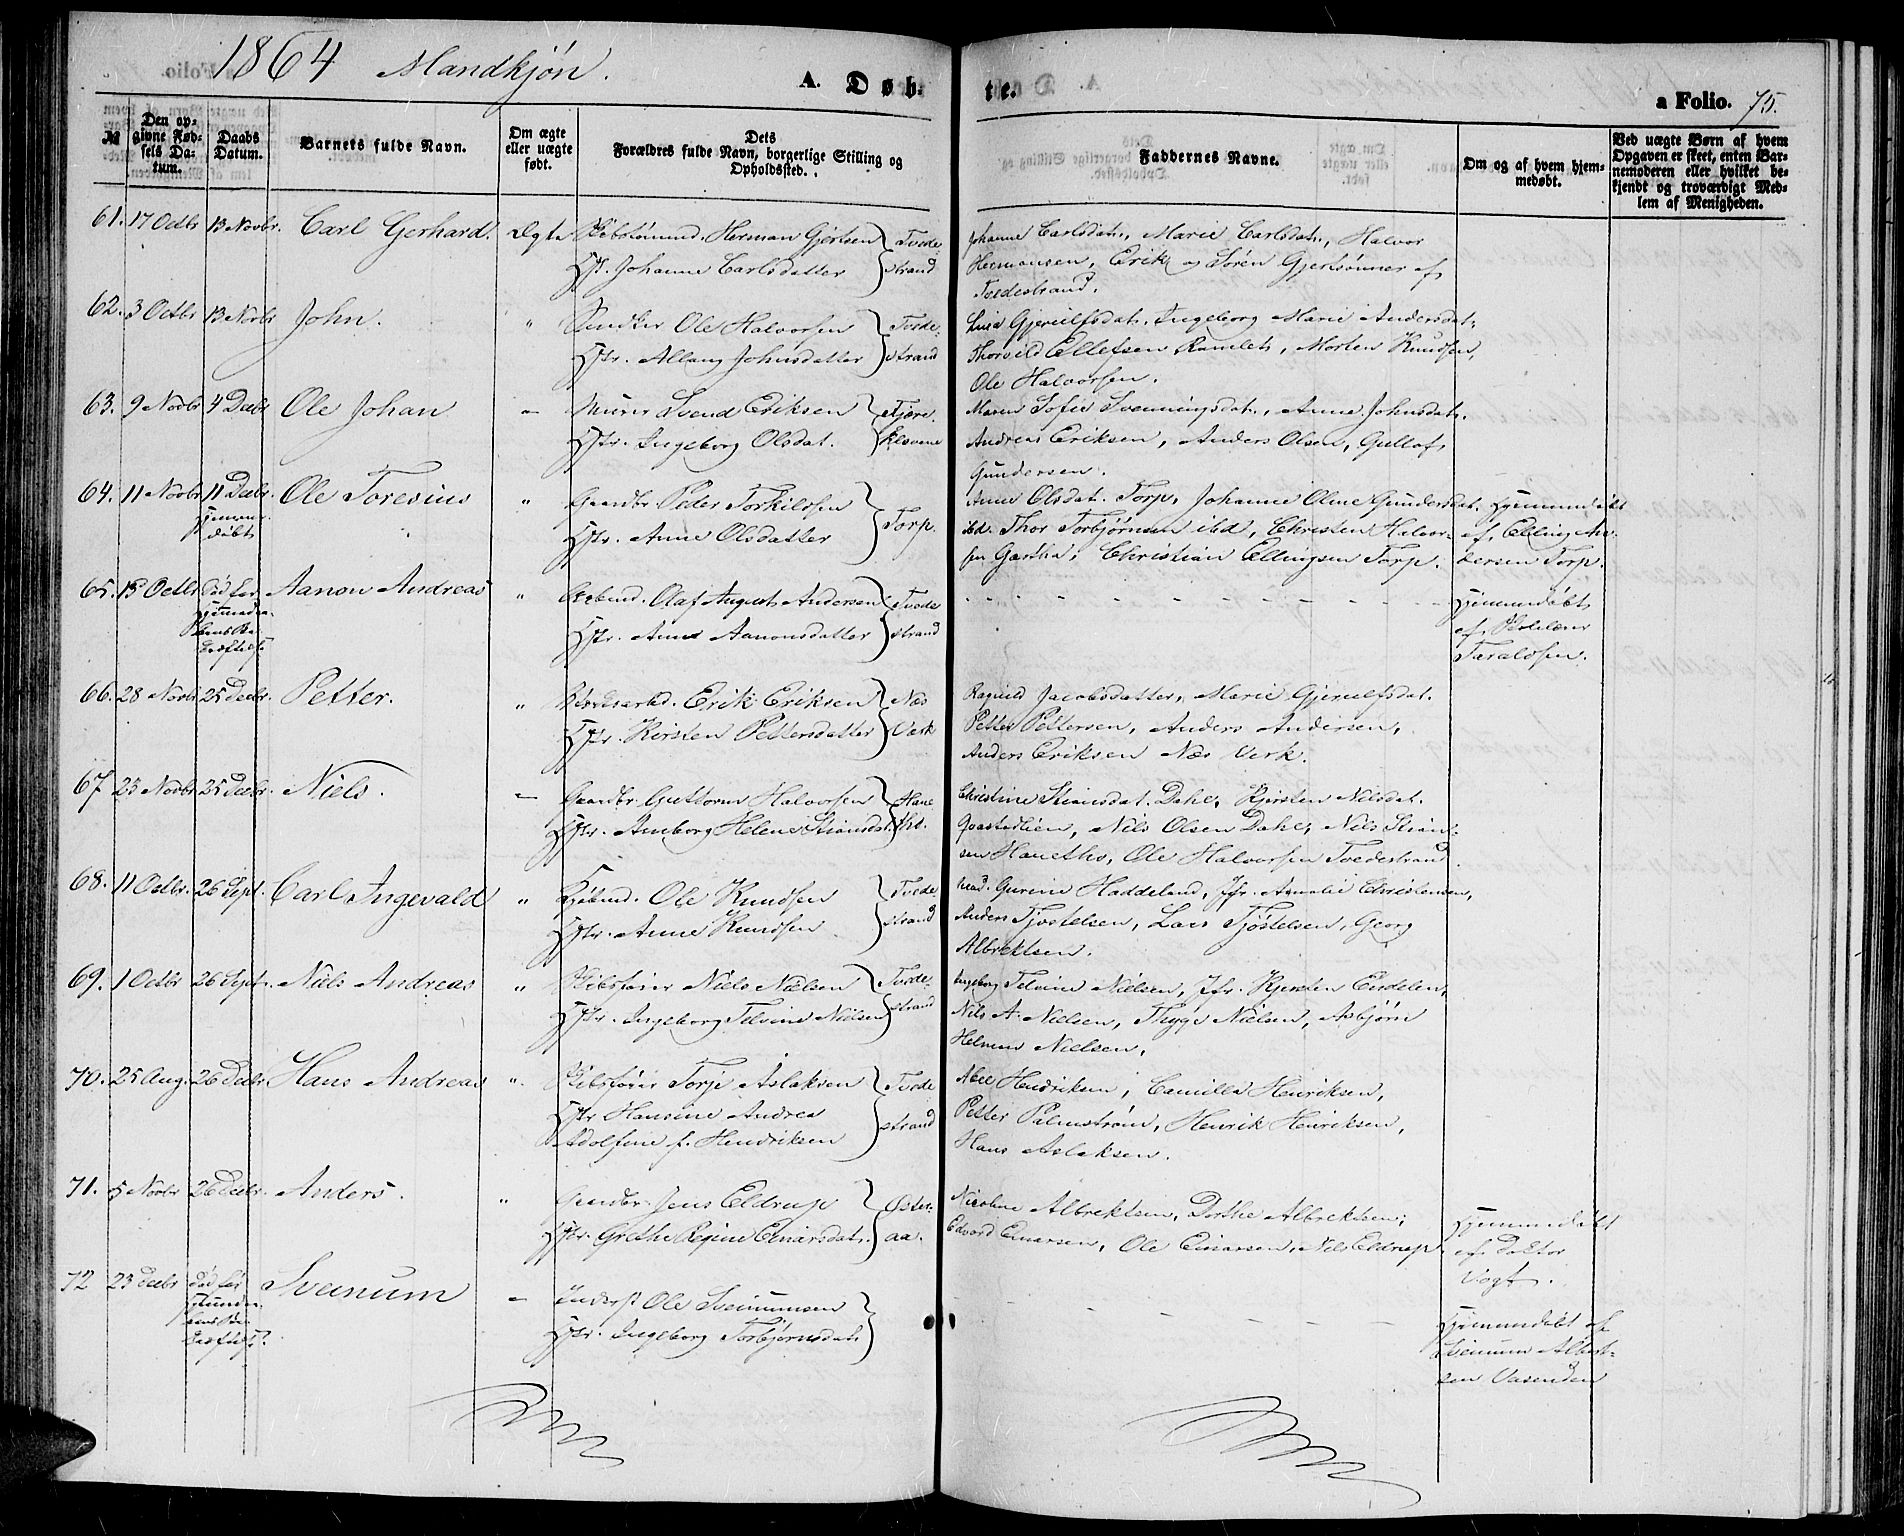 1864 Mandkjøn.
A. Døb-
te.
a Folio. 75.
№
Den op-
givne Fød-
sels Da-
tum.
Daabs
Datum.
Barnets fulde Navn.
Om ægte
eller uægte
født.
Dets
Forældres fulde Navn, borgerlige Stilling og
Opholdssted.
Faddernes Navne.
Om og af hvem hjem-
medøbt.
Ved uægte Børn af hvem
Opgaven er skeet, enten Bar-
nemoderen eller hvilket be-
kjendt og troværdigt Med-
lem af Menigheden.
61. 17 Octbr 13 Novbr. Carl Gerhard. Ægte Skibstømmd. Herman Gjertsen Tvede-
Hstr. Johanne Carlsdatter strand
Johanne Carlsdat., Marie Carlsdat., Halvor
Hermansen, Erik og Søren Gjertsønner af
Tvedestrand.
62. 3 Octbr 13 Novbr John. " Snedker Ole Halvorsen Tvede-
Hstr. Allaug Johnsdatter strand
Lisa Gjerulfsdat., Ingeborg Marie Andersdat.
Thorvild Ellefsen Ramlet, Morten Knudsen,
Ole Halvorsen.
63. 9 Novbr 4 Decbr Ole Johan " Murer Svend Eriksen Fjære-
Hstr. Ingeborg Olsdat. kleivene
Maren Sofie Svenningsdat., Anne Johnsdat.
Andreas Eriksen, Anders Olsen, Gullof
Gundersen.
64. 11 Novbr 11 Decbr. Ole Toresius " Gaardbr Peder Torkilsen
hjemme-
døbt
Hstr. Anne Olsdatter Torp.
Anne Olsdat. Torp, Johanne Oline Gundersdat. Hjemmedøbt
ibd. Thor Torbjørnsen ibd, Christen Halvor- af Elling An-
sen Gartha, Christian Ellingsen Torp. dersen Torp.
65. 13 Octbr Død før Aanon Andreas " Olaf August Andersen Tvede
Hstr. Anne Aanonsdatter strand
Hjemmedøbt
af
Taraldsen.
66. 28 Novbr 25 Decbr. Petter. " Erik Eriksen Næs
Hstr. Kirsten Pettersdatter Verk
Ragnild Jacobsdatter, Marie Gjerulfsdat.
Petter Pettersen, Anders Andersen,
Anders Eriksen Næs Verk.
67 23 Novbr 25 Decbr. Niels. " Gaardbr Guttorm Halvorsen Hane
Hstr. Amborg Helene Stiansdat. tho.
Christine Stiansdat. Dahl, Kjersten Nilsdat.
Qvastadlien, Nils Olsen Dahl, Nils Stian-
sen Hanetho, Ole Halvorsen Tvedestrand.
68. 11 Octbr. 26 Sept. Carl Ingevald " Kjøbmd. Ole Knudsen Tvede-
Hstr. Anne Knudsen strand
Mad. Gurine Haddeland, Jfr. Amalie Christensen,
Anders Tjøstelsen, Lars Tjøstelsen, Georg
Albrektsen.
69. 1 Octbr 26 Sept. Niels Andreas " Skibsfører Niels Nielsen Tvede-
Hstr. Ingeborg Telvine Nielsen strand
Ingeborg Telvine Nielsen, Jfr. Kjersten Eudelen,
Nils A. Nielsen, Thyge Nielsen, Asbjørn
Helmer Nielsen.
70. 25 Aug. 26 Decbr Hans Andreas " Skibsfører Torje Aslaksen Tvede
Hstr Hansine Andrea strand
Adolfine f. Hendriksen
Abel Hendriksen, Camilla Henriksen,
Petter Palmstrøm, Henrik Henriksen,
Hans Aslaksen.
71. 5 Novbr 26 Decbr. Anders. " Gaardbr. Jens Eldrup Øster-
Hstr. Grethe Regine Einarsdat. aa.
Nicoline Albrektsen, Dorthe Albrektsen,
Edvard Einarsen, Ole Einarsen, Nils Eldrup
Hjemmedøbt
af Doktor
Vogt.
72 23 Decbr Død før Sveinum " Inderst Ole Sveinumsen
Hstr. Ingeborg Torbjørnsdat.
Hjemmedøbt af
Sveinum Albert-
sen Vasenden